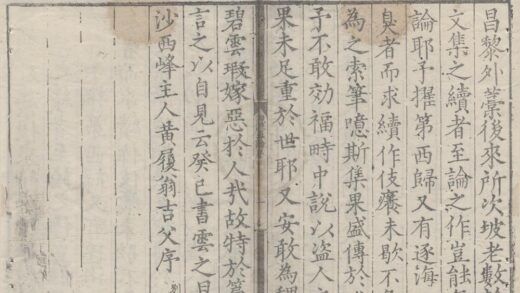 昌黎外藁後來所次坡老數
文集之續者至論之作豈能
論耶予擢第西歸又有逐海
臭者而求續作伎癢未歇不
為之索筆噫斯集果盛傳於
予不敢効福畤中說以盜人
果未足重於世耶又安敢為
碧雲瑕嫁惡於人哉故特於篇
言之以自見云癸巳書雲之日
沙西峰主人黄履翁吉父序